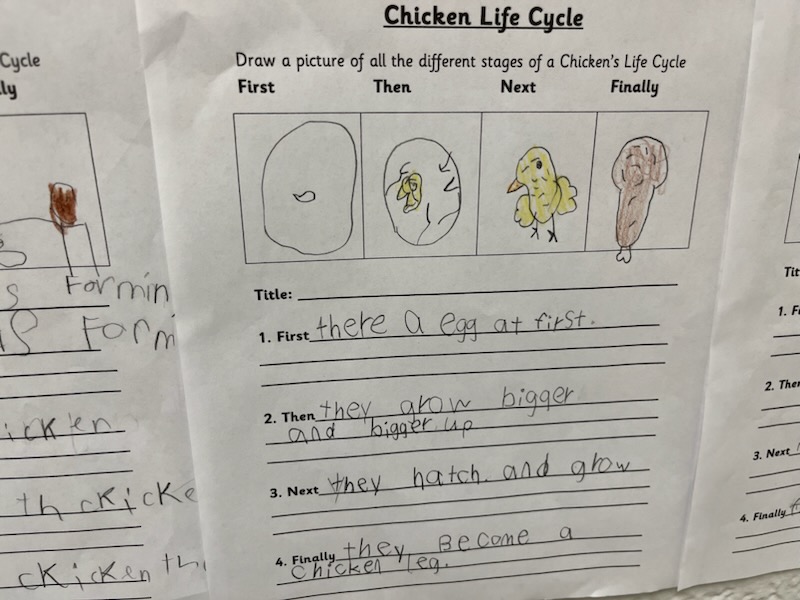 Chicken Life Cycle
Draw a picture of all the different stages of a Chicken's Life Cycle
First Then Next Finally
Title:
1. First there a egg at first.
2. Then they grow bigger
and bigger up
3. Next they hatch and grow
4. Finally they Become a
chicken leg.
Cycle
s Formin
Form
icken
th ckicke
ckicken th
Tit
1. Fi
2. Ther
3. Next
4. Finally